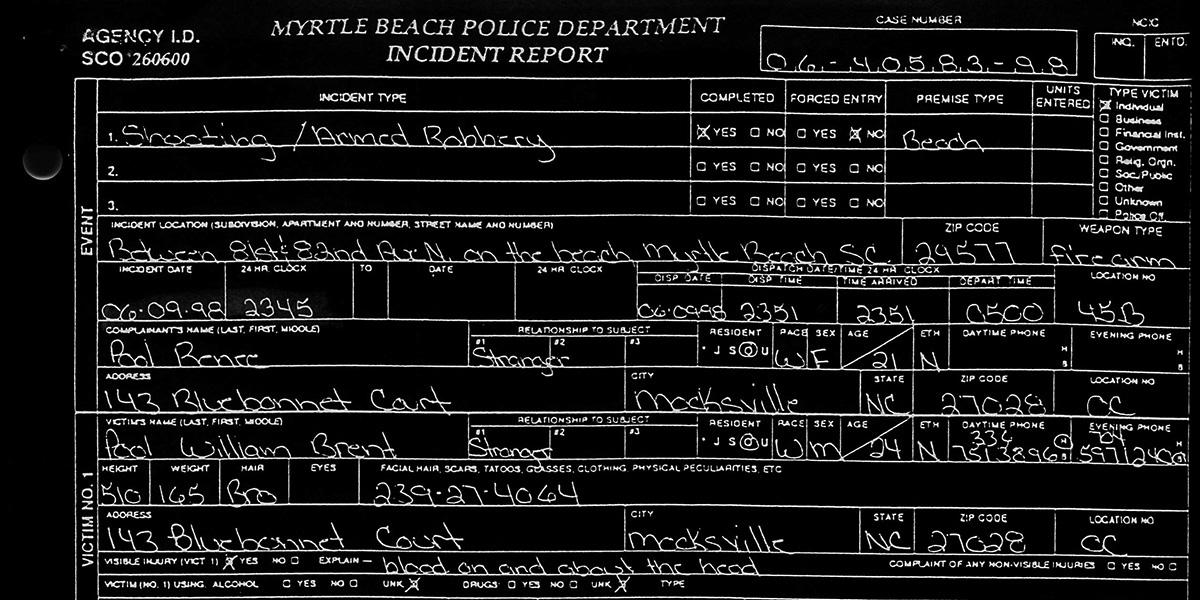 AGENCY I.D.
SCO 260600
MYRTLE BEACH POLICE DEPARTMENT
INCIDENT REPORT
CASE NUMBER
06-40583-98
NCIC
INQ. ENTD.
EVENT
INCIDENT TYPE COMPLETED FORCED ENTRY PREMISE TYPE UNITS ENTERED TYPE VICTIM
1. Shooting / Armed Robbery ☒ YES ☐ NO ☐ YES ☒ NO Beach
2. ☐ YES ☐ NO ☐ YES ☐ NO
3. ☐ YES ☐ NO ☐ YES ☐ NO
☒ Individual
☐ Business
☐ Financial Inst.
☐ Government
☐ Relig. Orgn.
☐ Soc. Public
☐ Other
☐ Unknown
☐ Police Off
INCIDENT LOCATION (SUBDIVISION, APARTMENT AND NUMBER, STREET NAME AND NUMBER) ZIP CODE WEAPON TYPE
Between 81st & 82nd Ave N. on the beach Myrtle Beach S.C. 29577 firearm
INCIDENT DATE 24 HR CLOCK TO DATE 24 HR CLOCK DISPATCH DATE/TIME 24 HR CLOCK LOCATION NO
DISP DATE DISP TIME TIME ARRIVED DEPART TIME
06-09-98 2345 06-09-98 2351 2351 0500 45B
COMPLAINANT'S NAME (LAST, FIRST, MIDDLE) RELATIONSHIP TO SUBJECT RESIDENT RACE SEX AGE ETH DAYTIME PHONE EVENING PHONE
#1 #2 #3 J S O U H B H B
Pool Renee Stranger W F 21 N
ADDRESS CITY STATE ZIP CODE LOCATION NO
143 Bluebonnet Court Mocksville NC 27028 CC
VICTIM NO. 1
VICTIM'S NAME (LAST, FIRST, MIDDLE) RELATIONSHIP TO SUBJECT RESIDENT RACE SEX AGE ETH DAYTIME PHONE EVENING PHONE
#1 #2 #3 J S O U
Pool William Brent Stranger W M 24 N 336 7513896
HEIGHT WEIGHT HAIR EYES FACIAL HAIR, SCARS, TATOOS, GLASSES, CLOTHING, PHYSICAL PECULIARITIES, ETC
510 165 Bro 239-27-4064
ADDRESS CITY STATE ZIP CODE LOCATION NO
143 Bluebonnet Court Mocksville NC 27028 CC
VISIBLE INJURY (VICT 1) ☒ YES NO ☐ EXPLAIN — blood on and about the head COMPLAINT OF ANY NON-VISIBLE INJURIES ☐ YES NO ☐
VICTIM (NO. 1) USING: ALCOHOL ☐ YES NO ☐ UNK ☒ DRUGS: ☐ YES NO ☐ UNK ☒ TYPE